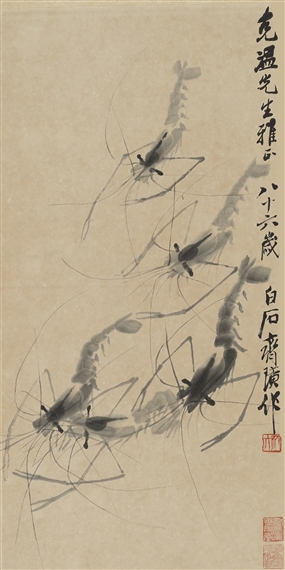 克温先生雅正 八十六岁 白石齊璜作